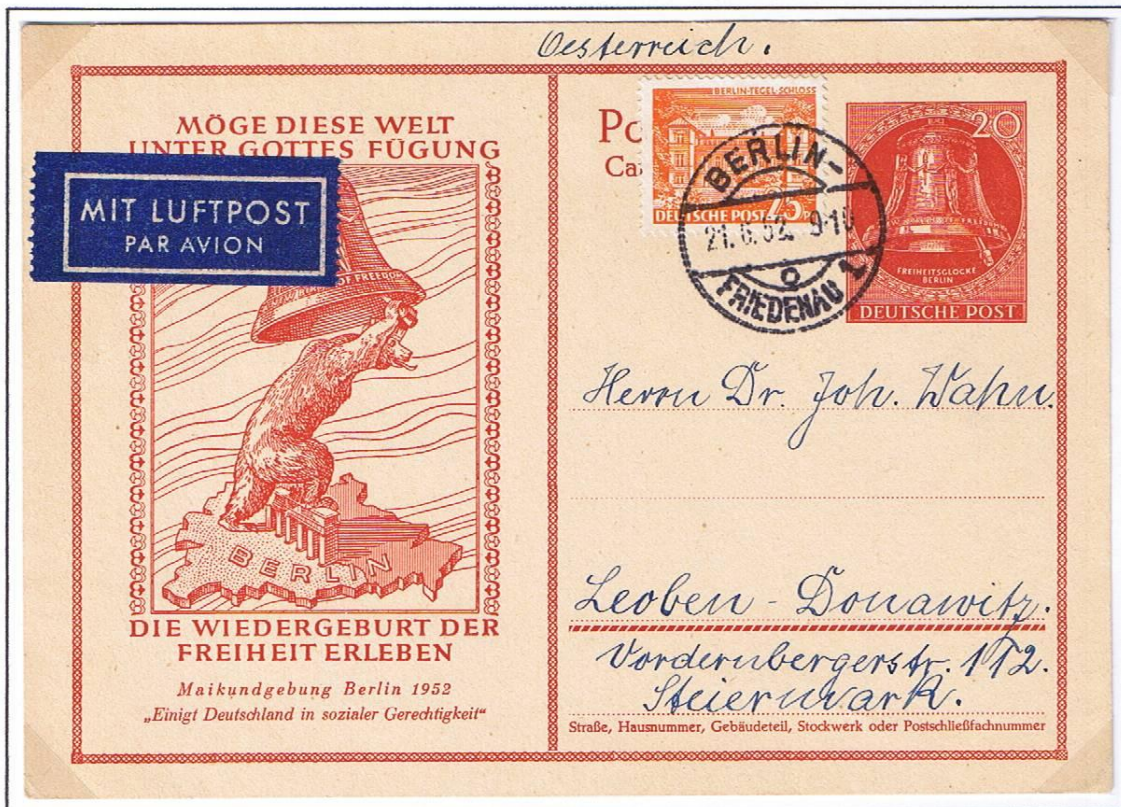 Oesterreich.
MÖGE DIESE WELT
UNTER GOTTES FÜGUNG
MIT LUFTPOST
PAR AVION
OF FREEDOM
BERLIN
DIE WIEDERGEBURT DER
FREIHEIT ERLEBEN
Maikundgebung Berlin 1952
„Einigt Deutschland in sozialer Gerechtigkeit“
Po
Ca
BERLIN-TEGEL·SCHLOSS
DEUTSCHE POST 25 Pf
BERLIN-
52 9-10
FRIEDENAU
20
FREIHEITSGLOCKE
BERLIN
DEUTSCHE POST
Herrn Dr. Joh. Wahn.
Leoben - Donawitz.
Vordernbergerstr. 112.
Steiermark.
Straße, Hausnummer, Gebäudeteil, Stockwerk oder Postschließfachnummer